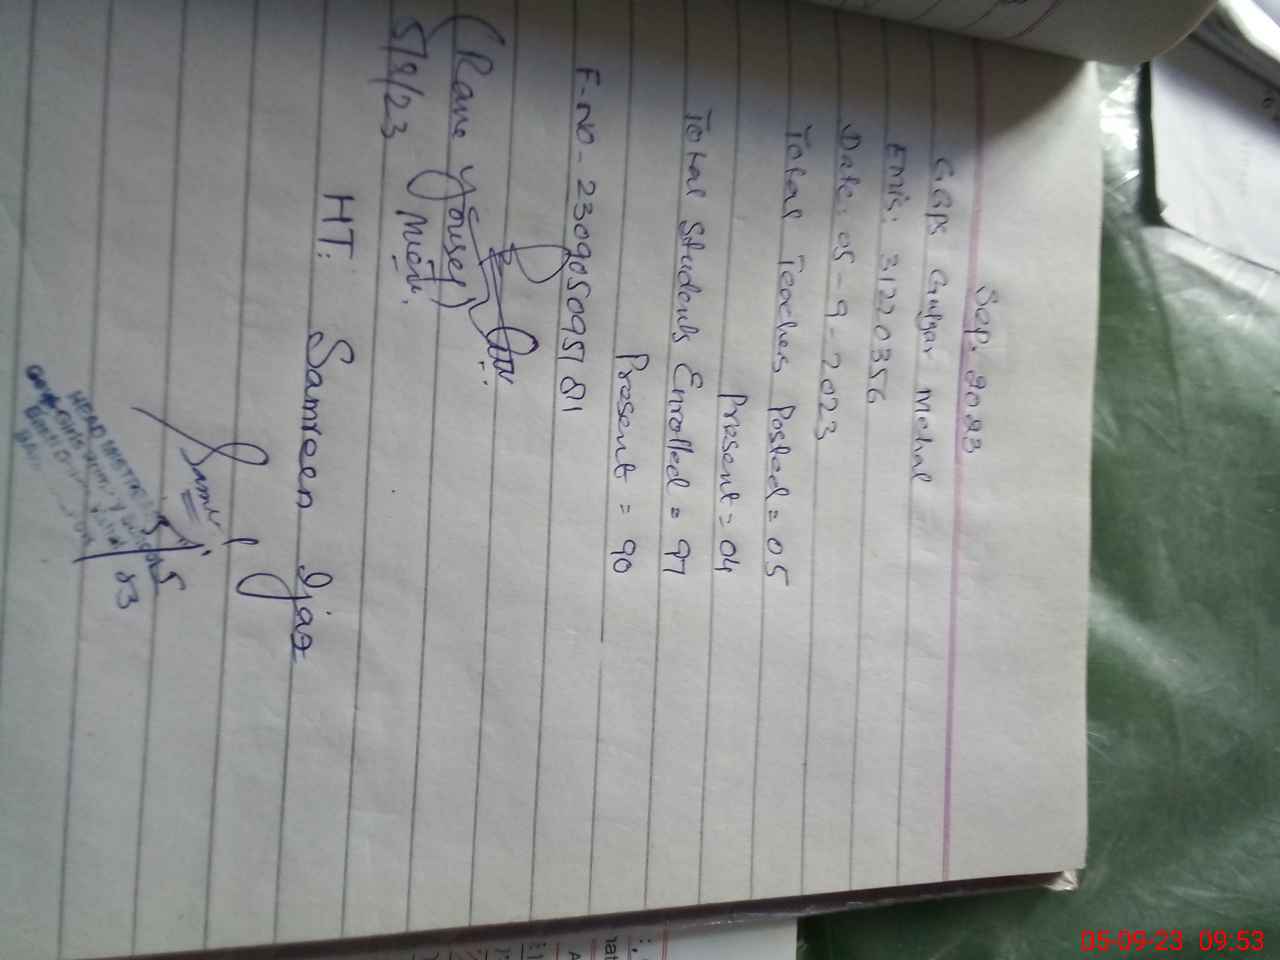 Sep. 2023
GGPS Gulzar Mehal
Emis: 31220356
Date: 05-9-2023
Total Teaches Posted = 05
Present = 04
Total Students Enrolled = 97
Present = 90
F-No- 230905095181
(Rana Yousef)
5/9/23
HT: Samreen Ijaz
HEAD MISTRESS
05-09-23 09:53